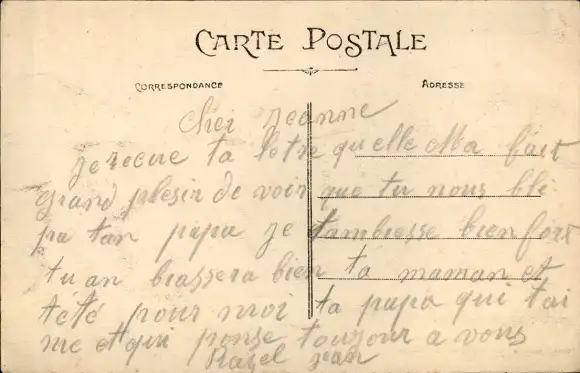 CARTE POSTALE
CORRESPONDANCE
ADRESSE
Cher Jeanne
je recue ta letre quelle Ma fait
grand plesir de voir que tu nous blé
pa tan papa je tambrasse bien fort
tu an brassera bien ta maman et
teté pour moi ta papa qui tai
me et qui panse toujour a vous
jean